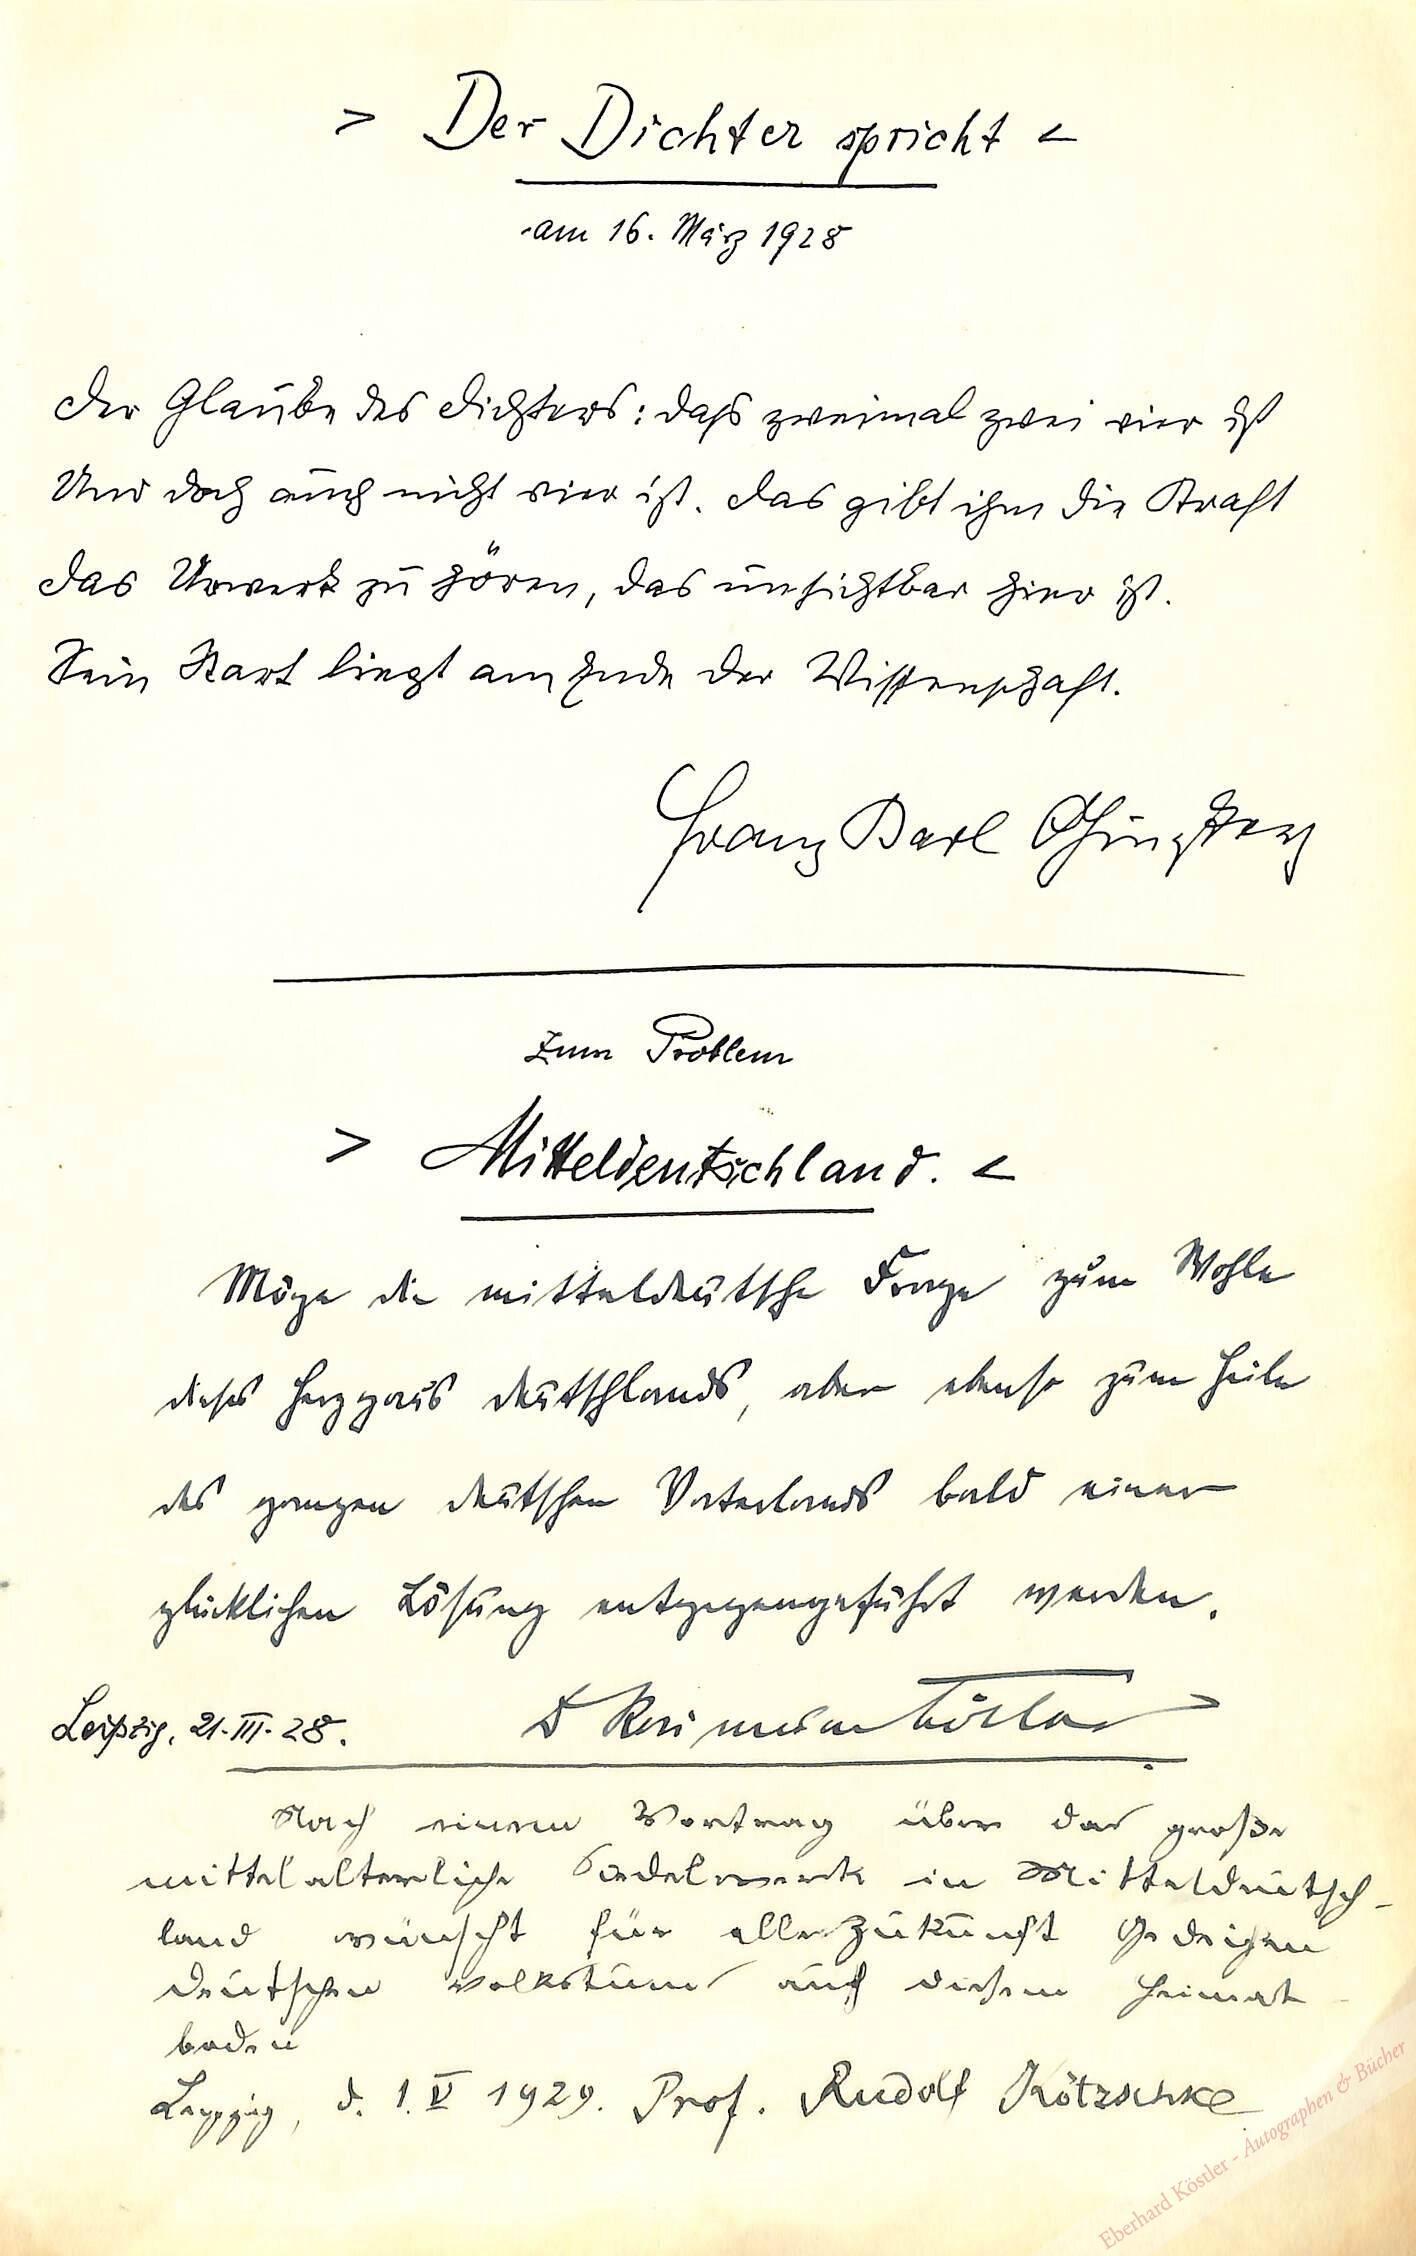 > Der Dichter spricht <
am 16. März 1928
Der Glaube des Dichters: daß zweimal zwei vier ist
Und doch auch nicht vier ist. Das gibt ihm die Kraft
Das Urwerk zu hören, das unsichtbar hier ist.
Sein Start liegt am Ende der Wissenschaft.
Franz Karl Ginzkey
Zum Problem
> Mitteldeutschland. <
Möge die mitteldeutsche Frage zum Wohle
dieses Herzgaus Deutschlands, aber ebenso zum Heile
des ganzen deutschen Vaterlands bald einer
glücklichen Lösung entgegengeführt werden.
Leipzig, 21.III.28.
Nach einem Vortrag über das große
mittelalterliche Siedelwerk in Mitteldeutsch-
land wünscht für alle Zukunft Gedeihen
deutschen Volkstums auf diesem Heimat-
boden
Leipzig, d. 1. V 1929. Prof. Rudolf Kötzschke
Eberhard Köstler - Autographen & Bücher